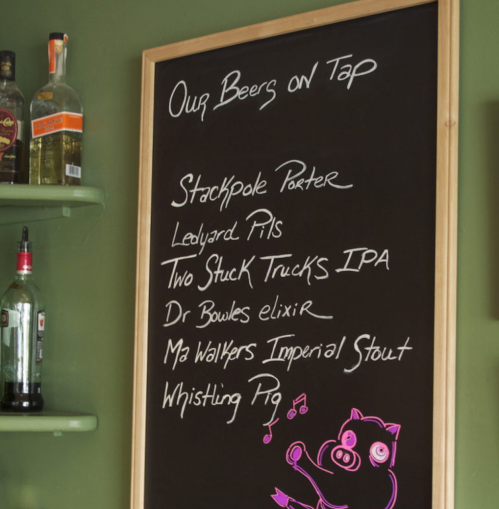 Our Beers on Tap
Stackpole Porter
Ledyard Pils
Two Stuck Trucks IPA
Dr Bowles elixir
Ma Walkers Imperial Stout
Whistling Pig